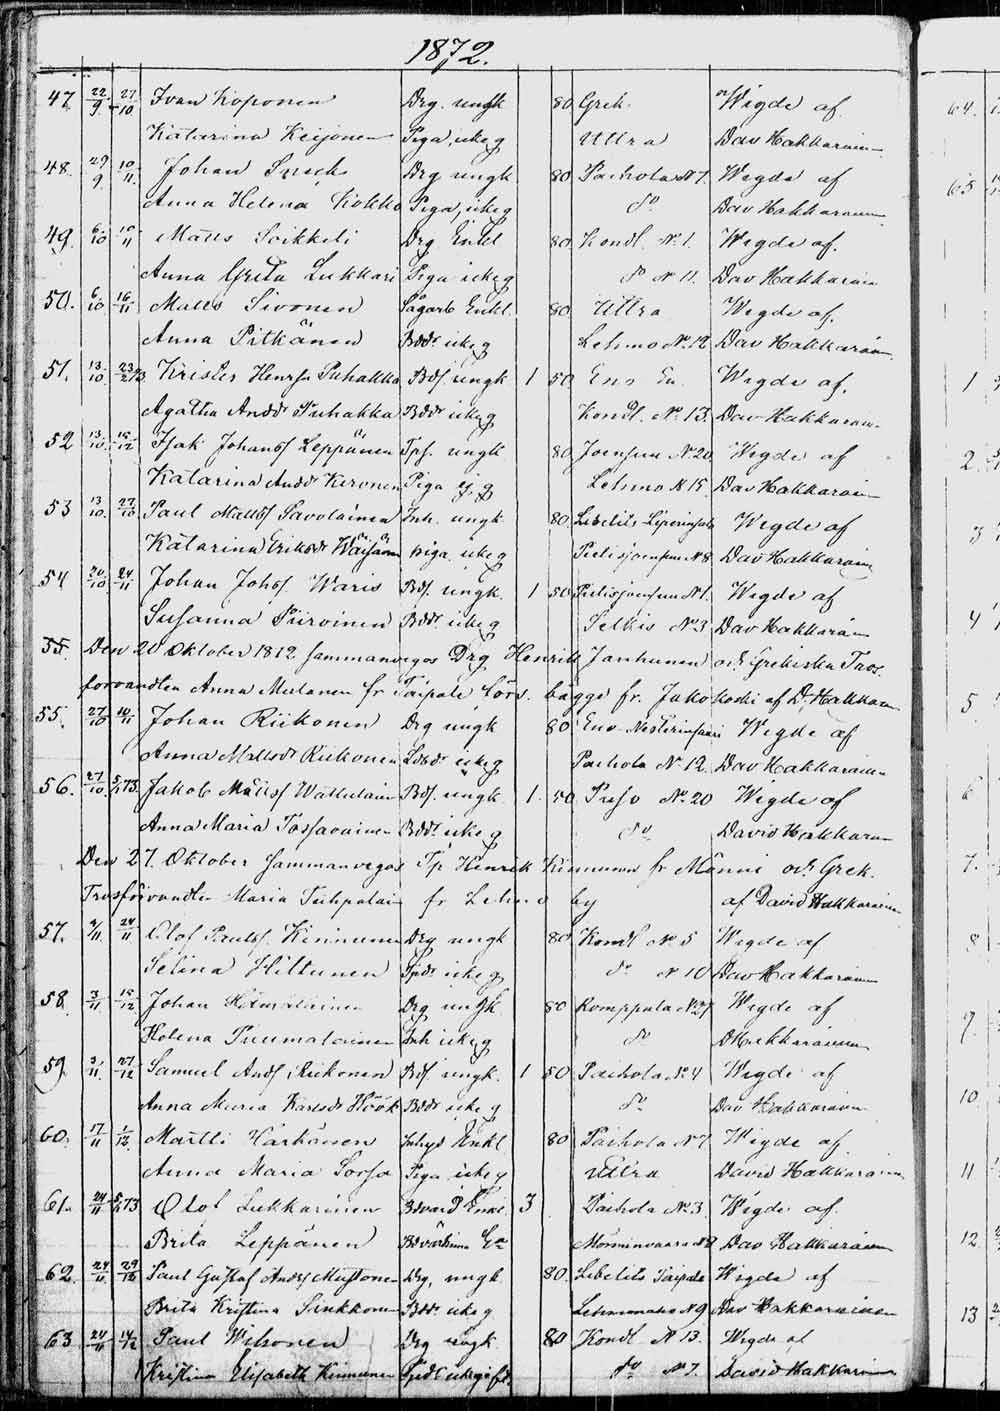 1872.
47. 22/9 27/10 Ivan Koponen Drg. ungk 80 Grek. Wigde af
Katarina Keijonen Piga, icke g Utra Dav Hakkarain
48. 29/9 10/11 Johan Drg ungk 80 Paihola N 7. Wigde af
Anna Helena Kokko Piga, icke g do Dav Hakkarainen
49. 6/10 10/11 Matts Soikkeli Drg Enkl 80 Kondl. No 1. Wigde af.
Anna Greta Lukkari Piga icke g do N 11. Dav Hakkarain
50. 6/10 16/11 Matts Sivonen Sågarb Enkl. 80 Utra Wigde af.
Anna Pitkänen Bddr icke g Lehmo No. 12 Dav Hakkarain
51. 13/10 Krister Henrss Puhakka Bds. ungk 1 50 Eno Wigde af.
Agatha Andsdr Puhakka Bddr icke g Kondl. No 13. Dav Hakkarain
52 13/10 15/12 Isak Johanss Leppänen Tps. ungk 80 Joensuu No. 20 Wigde af
Katarina Andsdr Kironen Piga ej g Lehmo N 15 Dav Hakkarain
53 13/10 27/10 Paul Mattss Savolainen Inh. ungk 80 Libelits Wigde af
Katarina Eriksdr Wäisänen piga icke g Pielisjoensuu N 8 Dav Hakkarain
54 20/10 24/11 Johan Johss. Waris Bds. ungk. 1 50 Pielisjoensuu N 1. Wigde af
Susanna Piiroinen Bddr. icke g Selkis No. 3 Dav Hakkarain
55. Den 20 Oktober 1872 sammanvigos Drg Henrik Janhunen och Grekiska Tros.
forvandten Anna Mutanen fr Taipale förs. bägge fr. Jakokoski af D. Hakkarain
55. 27/10 10/11 Johan Riikonen Drg ungk 80 Eno Nesterinsaari Wigde af
Anna Mattsdr Riikonen icke g Paihola No. 12. Dav Hakkarainen
56. 27/10 5/1 73. Jakob Mattss Wattulain Bds. ungk. 1. 50 Puso No. 20 Wigde af
Anna Maria Tossavainen Bddr icke g do David Hakkarain
Den 27. Oktober sammanvigos Tp Henrik Kinnunen fr Mönni och Grek.
Trosförvandten Maria Tuhpalai fr Lehmo by af David Hakkarainen
57. 24/11 Olof Paulss. Kinnunen Drg ungk 80 Kondl No 5 Wigde af
Selina Hiltunen icke g do N 10 Dav Hakkarainen
58. 3/11 15/12 Johan Drg ungk 80 Romppala N 27 Wigde af
Helena Puumalainen Inh icke g do D Hakkarainen
59. 3/11 27/12 Samuel Andss Riikonen Bds. ungk. 1 50 Paihola No. 4 Wigde af
Anna Maria Karlsdr Höök Bddr icke g do Dav Hakkarainen
60. 17/11 1/12 Martti Härkönen Inhys Enkl 80 Paihola N 7 Wigde af
Anna Maria Sorsa Piga icke g Utra David Hakkarain
61. 24/11 5/1 73 Olof Lukkarinen Enkl. 3 Paihola No. 3. Wigde af.
Brita Leppänen Mönninvaara Dav Hakkarainen
62. 24/11 29/12 Paul Gustaf Andss Mustonen Drg, ungk. 80 Libelits Taipale Wigde af
Brita Kristina Sinkkonen Bddr icke g N 9 Dav Hakkarainen
63 24/11 14/12 Paul Drg ungk 80 Kondl N 13. Wigde af
Kristina Elisabeth Kinnunen do No 7. David Hakkarain
64.
65
1
2.
3
4
5.
6
7.
8
9.
10.
11
12.
13